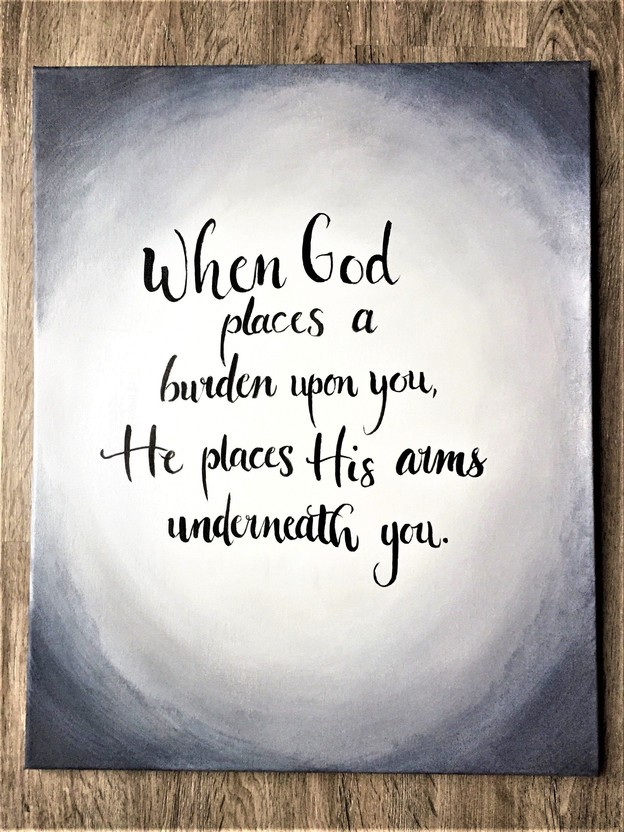 When God
places a
burden upon you,
He places His arms
underneath you.